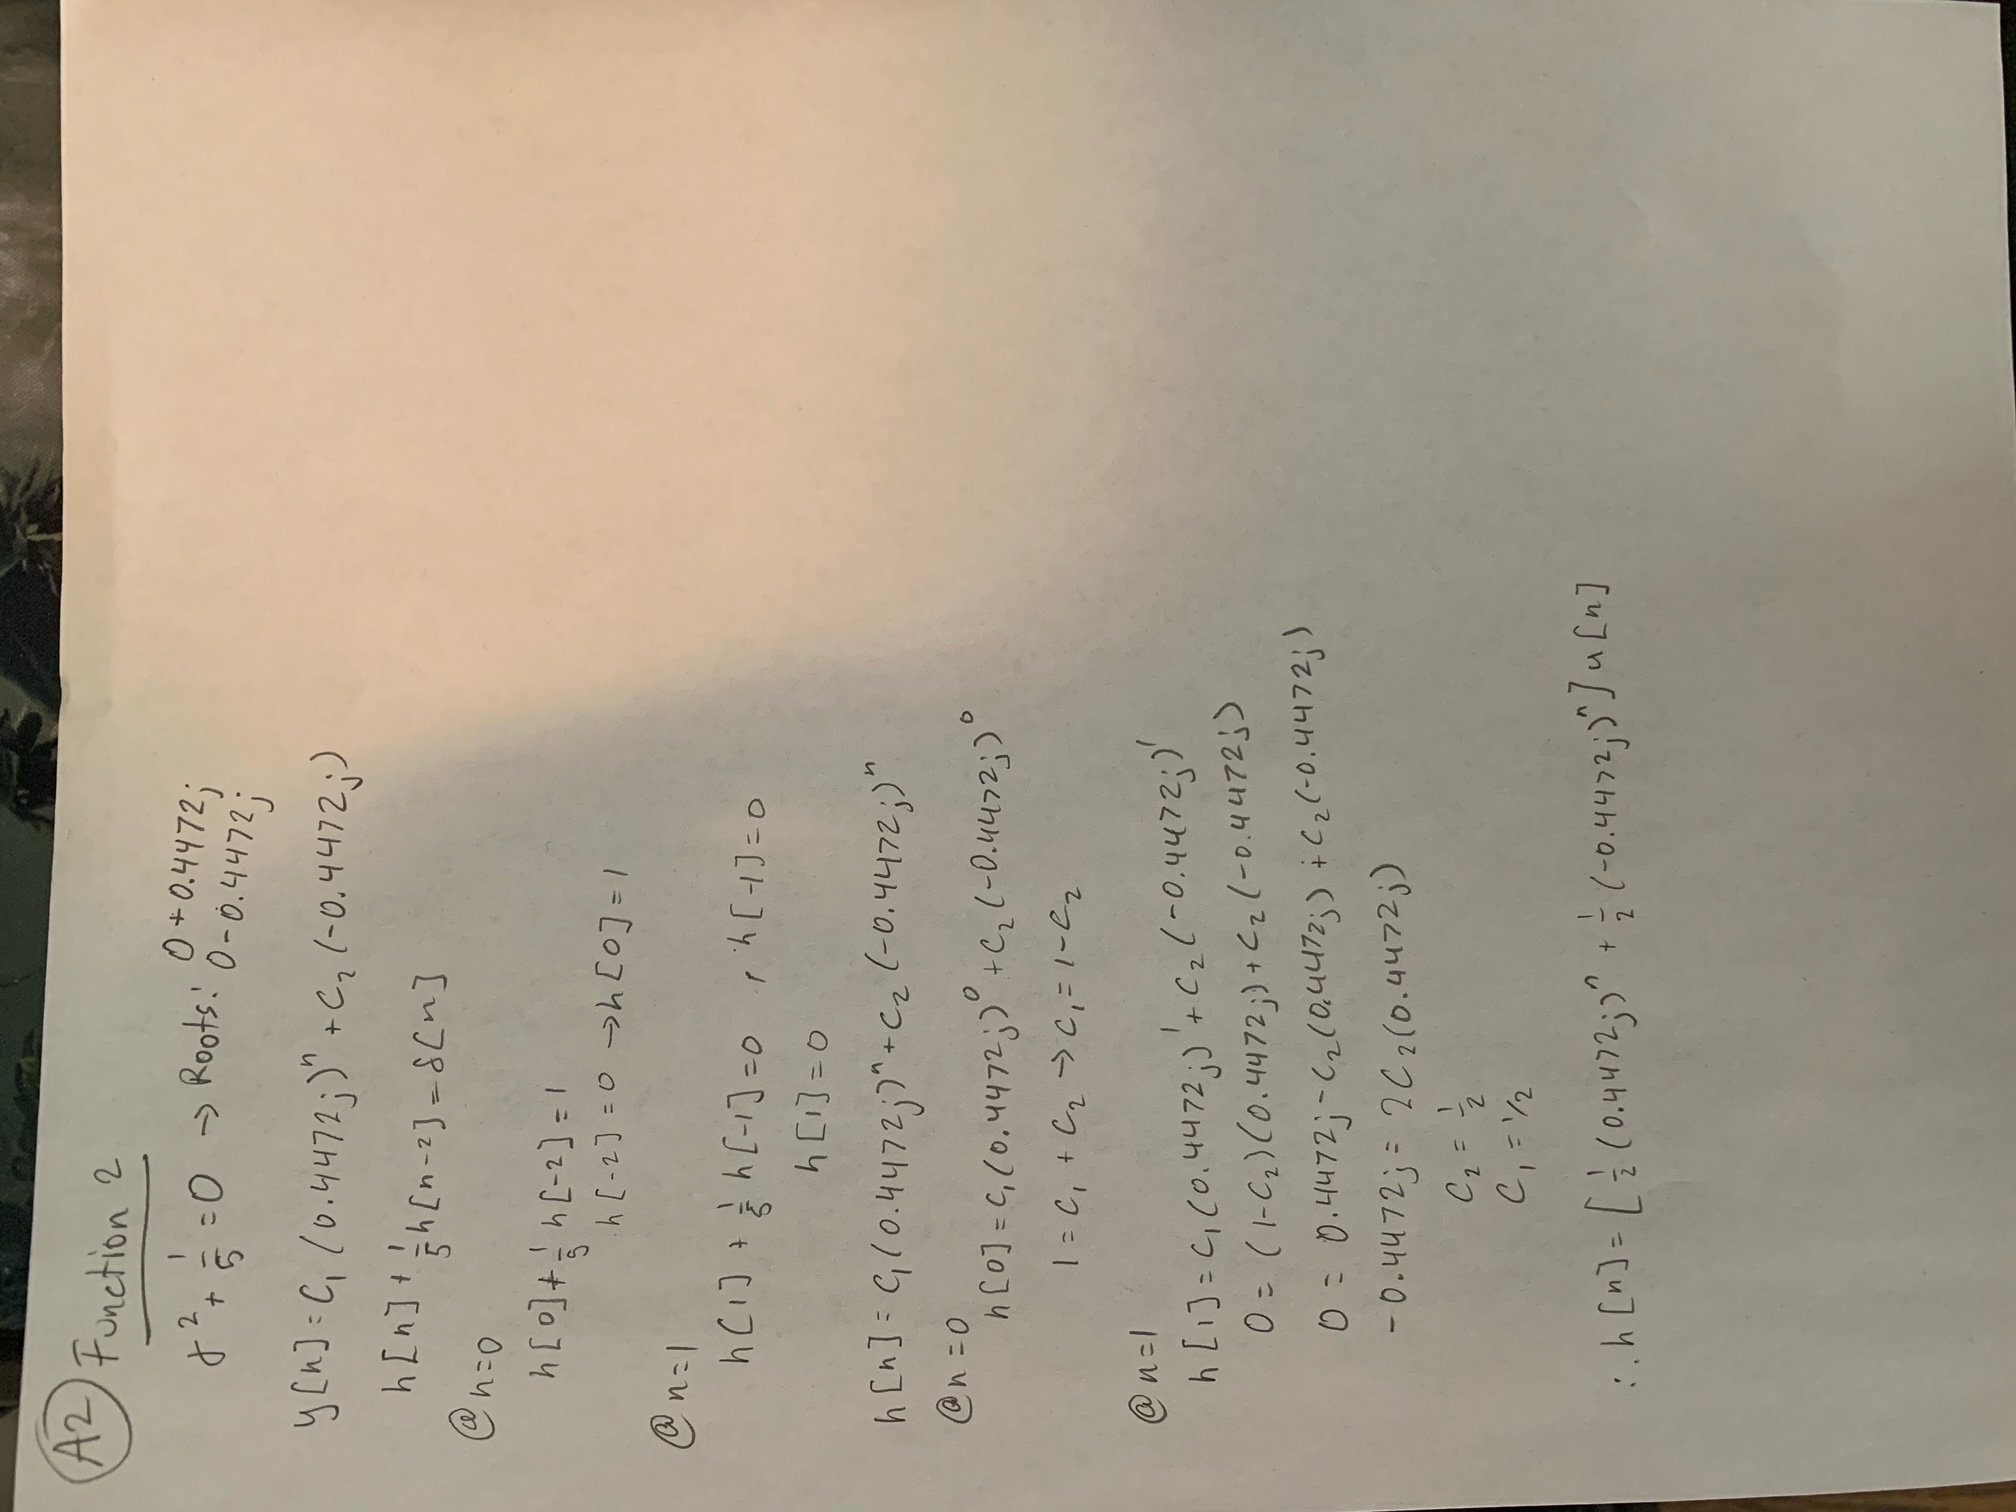 A2 Function 2
γ² + 1/5 = 0 → Roots: 0 + 0.4472j
0 - 0.4472j
y[n] = C₁ (0.4472j)ⁿ + C₂ (-0.4472j)
h[n] + 1/5 h[n-2] = δ[n]
@ n=0
h[0] + 1/5 h[-2] = 1
h[-2] = 0 → h[0] = 1
@ n=1
h[1] + 1/5 h[-1] = 0 , h[-1] = 0
h[1] = 0
h[n] = C₁ (0.4472j)ⁿ + C₂ (-0.4472j)ⁿ
@ n=0
h[0] = C₁ (0.4472j)⁰ + C₂ (-0.4472j)⁰
1 = C₁ + C₂ → C₁ = 1 - C₂
@ n=1
h[1] = C₁ (0.4472j)¹ + C₂ (-0.4472j)¹
0 = (1-C₂)(0.4472j) + C₂ (-0.4472j)
0 = 0.4472j - C₂(0.4472j) + C₂(-0.4472j)
-0.4472j = 2C₂(0.4472j)
C₂ = 1/2
C₁ = 1/2
∴ h[n] = [1/2 (0.4472j)ⁿ + 1/2 (-0.4472j)ⁿ] u[n]